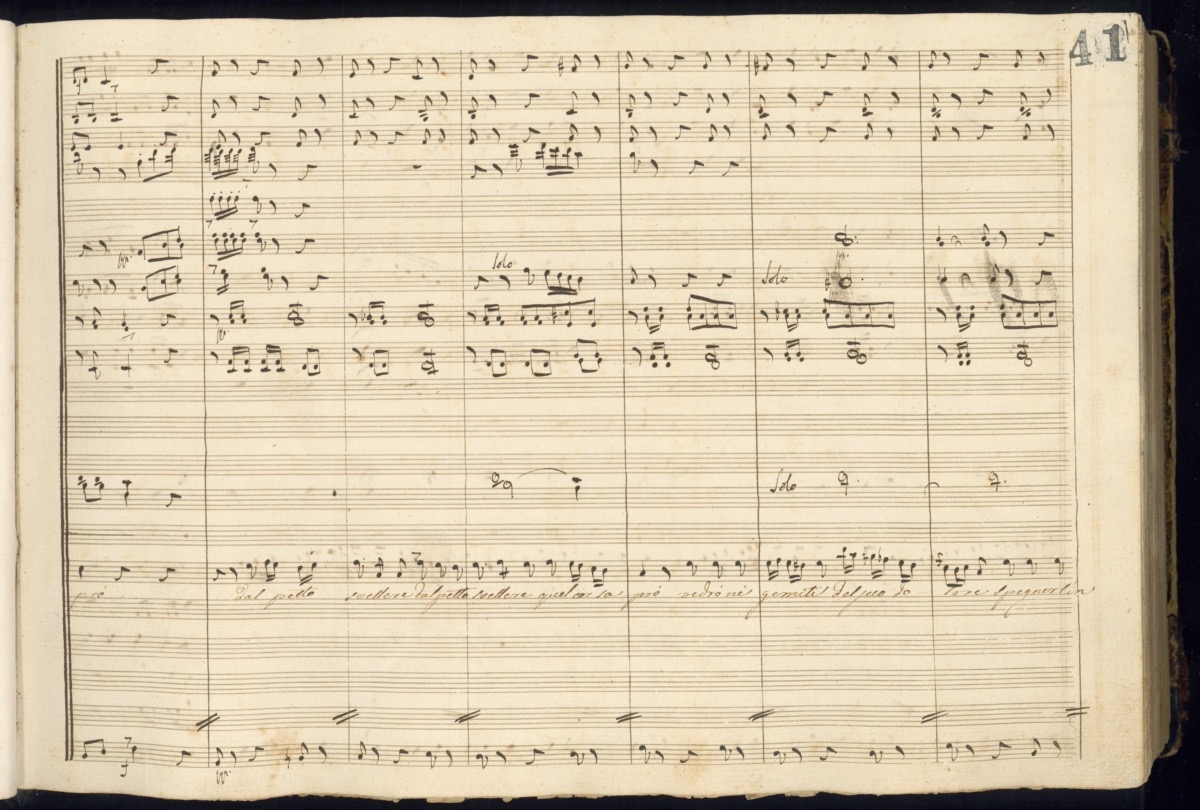 41
Solo
Solo
Solo
prò dal petto svellere dal petto svellere quel cor sa prò vedrò nè gemiti del suo do lore spegner l'in